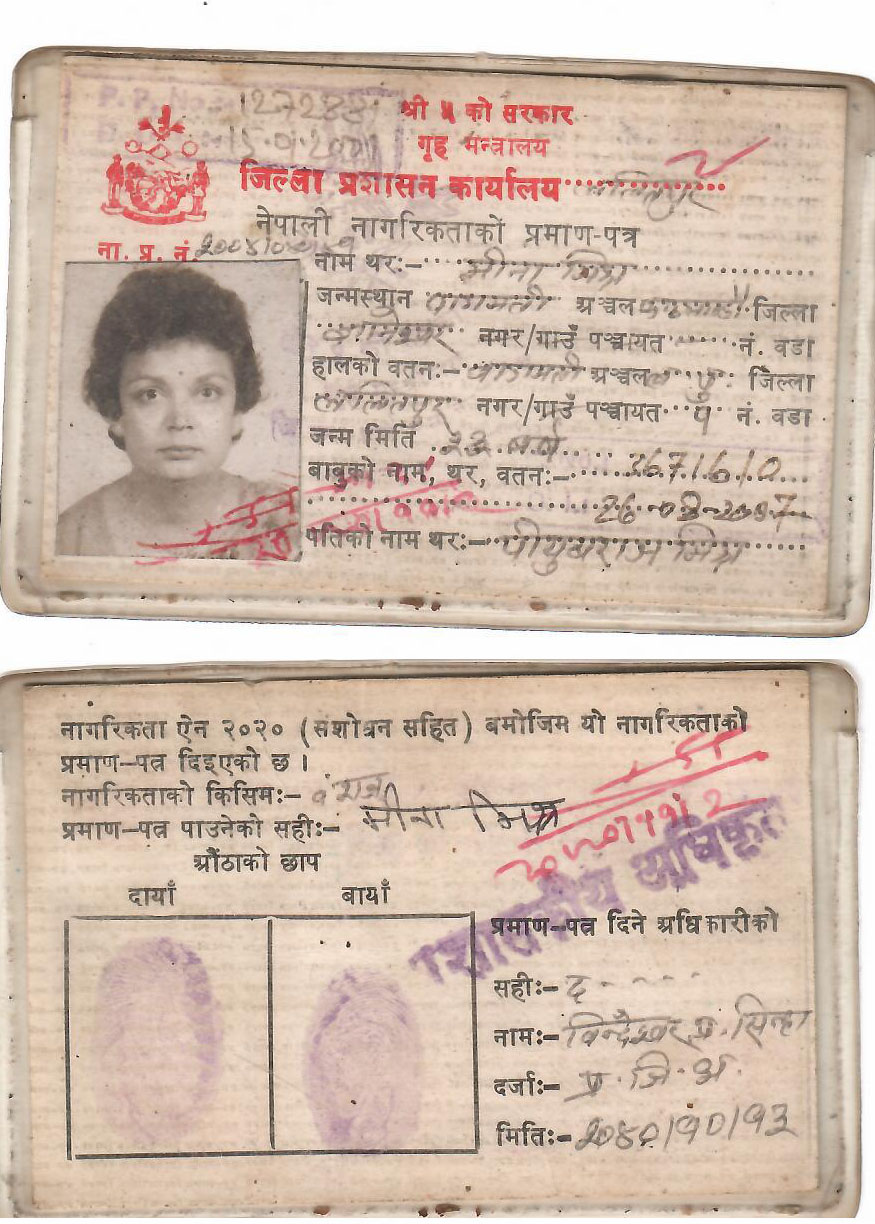 P. P. No. 127288
15.9.2001
श्री ५ को सरकार
गृह मन्त्रालय
जिल्ला प्रशासन कार्यालय ललितपुर
नेपाली नागरिकताको प्रमाण-पत्र
ना. प्र. नं.
नाम थर:- मीना मिश्र
जन्मस्थान वागमती अञ्चल काठमाडौं जिल्ला
नगर/गाउँ पञ्चायत नं. वडा
हालको वतन:- वागमती अञ्चल ल पु जिल्ला
ललितपुर नगर/गाउँ पञ्चायत नं. वडा
जन्म मिति २३ वर्ष
बाबुको नाम, थर, वतन:- 3671610
26-03-2007
पतिको नाम थर:- पीयुषराज मिश्र
नागरिकता ऐन २०२० (संशोधन सहित) बमोजिम यो नागरिकताको
प्रमाण-पत्र दिइएको छ ।
नागरिकताको किसिम:- वंशज
प्रमाण-पत्र पाउनेको सही:- मीना मिश्र
औंठाको छाप
दायाँ बायाँ
प्रशासकीय अधिकृत
प्रमाण-पत्र दिने अधिकारीको
सही:- द
नाम:- विन्देश्वर प्र. सिन्हा
दर्जा:- प्र. जि. अ.
मिति:- २०४०।१०।१३